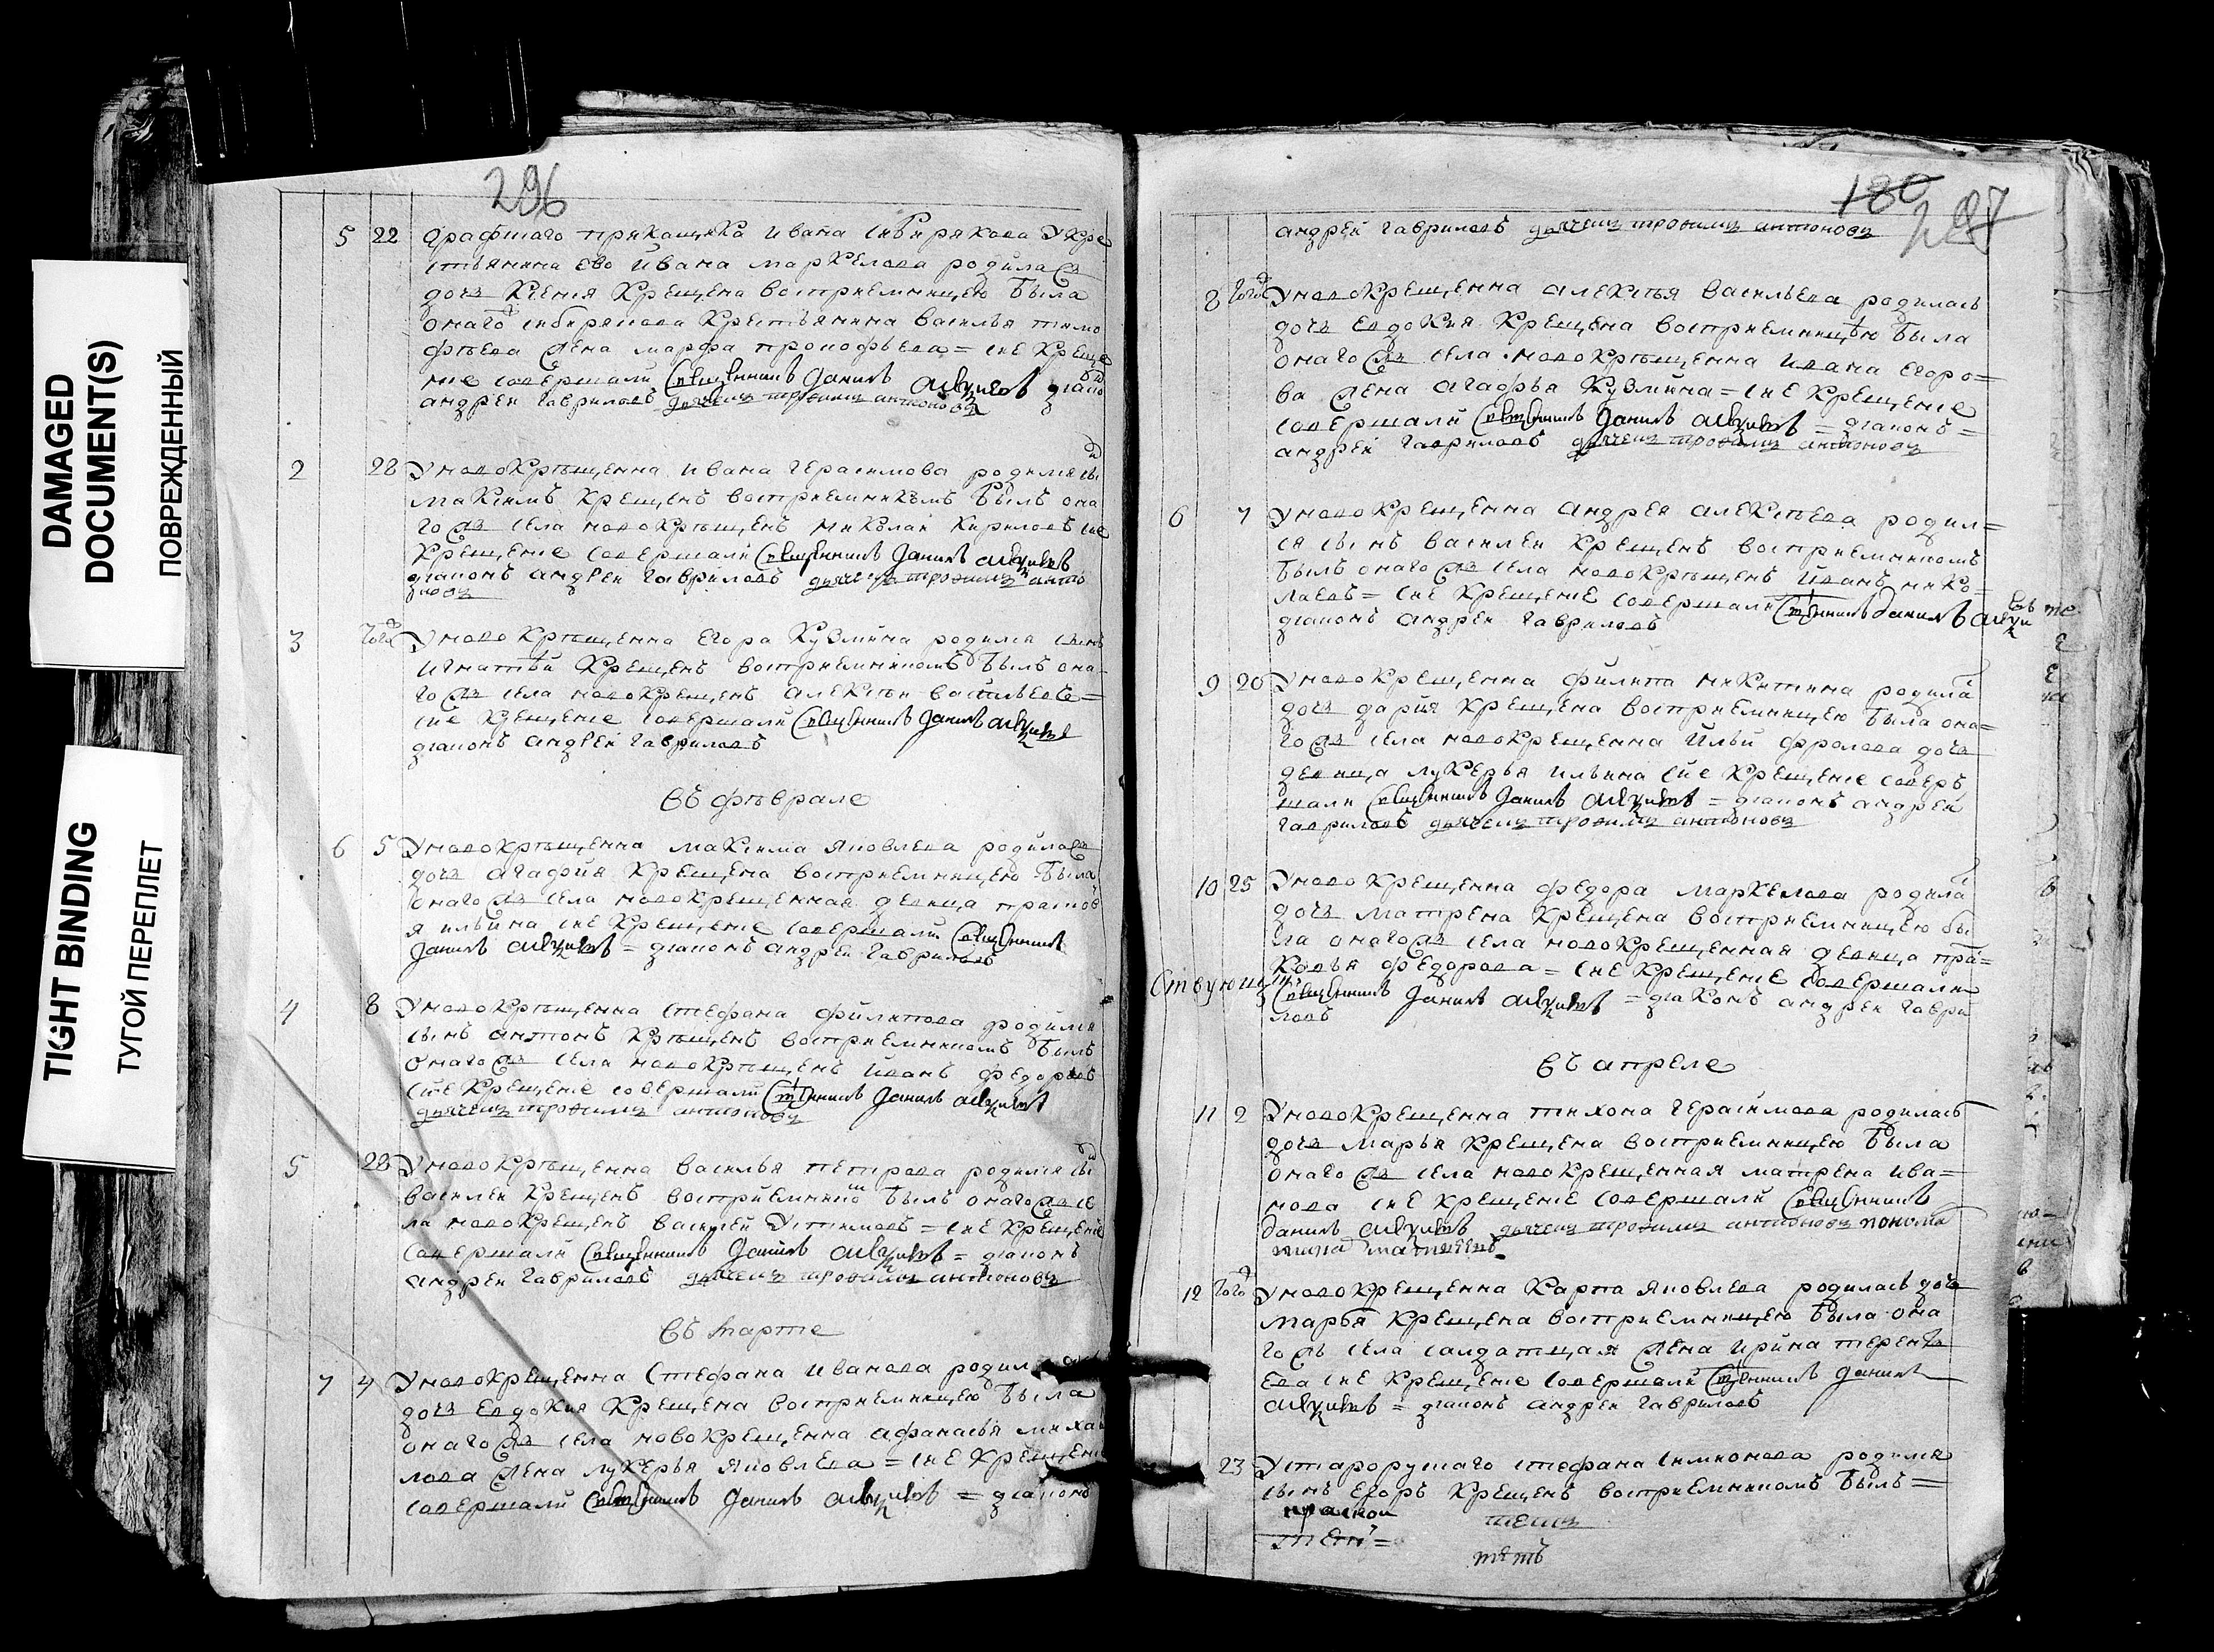 DAMAGED
DOCUMENT(S)
ПОВРЕЖДЕННЫЙ
TIGHT BINDING
ТУГОЙ ПЕРЕПЛЕТ
296
5 22 прикащика ивана сибирякова укре
стьянина ево ивана маркелова родилась
дочь ксения крещена восприемницею была
онаго сибирякова крестьянина василья тимо
фѣева жена марфа прокофьева = сие креще
ние совершали священникъ данилъ диако
андреи гавриловъ дьячекъ трофимъ антоновъ
2 28 у новокрѣщенна ивана герасимова родился сы
максимъ крещенъ восприемникомъ былъ она
гожъ села новокрѣщенъ николаи кириловъ сие
крещение совершали священникъ данилъ
диаконъ андреи гавриловъ дьячекъ трофимъ анто
новъ
3 того у новокрѣщенна егора кузмина родился сынъ
игнатѣй крещенъ восприемникомъ былъ она-
гожъ села новокрещенъ алексѣи васильевъ =
сие крещение совершали священникъ данилъ
диаконъ андрей гавриловъ
въ фѣврале
6 5 у новокрѣщенна максима яковлева родилась
дочь агафия крещена восприемницею была
онагожъ села новокрещенная девица праско
я ильина сие крещение совершали священникъ
данилъ = диаконъ андреи гавриловъ
4 8 у новокрѣщенна стефана филипова родился
сынъ антонъ крѣщенъ восприемникомъ былъ
онагожъ села новокрѣщенъ иванъ федоровъ
сие крещение совершали данилъ
дьячекъ трофимъ антоновъ
5 28 у новокрѣщенна василья петрова родился сы
василеи крещенъ восприемнико былъ онагожъ се
ла новокрещенъ василей устиновъ = сие крещение
совершали священникъ данилъ = диаконъ
андреи гавриловъ дьячекъ трофимъ антоновъ
въ марте
7 4 у новокрещенна стефана иванова родилась
дочь евдокия крещена восприемницею была
онагожъ села новокрещенна афанасья михаи
лова жена лукерья яковлева = сие крещени
совершали священникъ данилъ = диаконъ
180
297
андреи гавриловъ дьячекъ трофимъ антоновъ
8 того у новокрещенна алексѣя васильева родилась
дочь евдокия крещена восприемницѣю была
онагожъ села новокрѣщенна ивана егоро=
ва жена агафья кузмина = сие крещение
совершали священникъ данилъ = диаконъ =
андреи гавриловъ дьячекъ трофимъ антоновъ
6 7 у новокрещенна андрея алексѣева родил=
ся сынъ василеи крещенъ восприемникомъ
былъ онагожъ села новокрѣщенъ иванъ нико-
лаевъ = сие крещение совершали данилъ
диаконъ андреи гавриловъ
9 20 у новокрещенна филипа никитина родила
дочь дария крещена восприемницею была она=
гожъ села новокрещенна ильи фролова дочь
девица лукерья ильина сие крещение соверъ
шали священникъ данилъ = диаконъ андреи
гавриловъ дьячекъ трофимъ антоновъ
10 25 у новокрещенна федора маркелова родила
дочь матрена крещена восприемницею бы
ла онагожъ села новокрещенная девица пра=
ковья федорова = сие крещение совершали
священникъ данилъ = диаконъ андреи гаври
ловъ
въ апреле
11 2 у новокрещенна тихона герасимова родилась
дочь марья крещена восприемницею была
онагожъ села новокрещенная матрена ива=
нова сие крещение совершали священникъ
данилъ дьячекъ трофимъ антоновъ понома
12 того у новокрещенна карпа яковлева родилась дочь
марья крещена восприемницею была она
гожъ села салдатцкая жена ирина теренть
ева сие крещение совершали данилъ
= диаконъ андреи гавриловъ
23 у старорускаго стефана симионова родился
сынъ егоръ крещенъ восприемникомъ былъ =